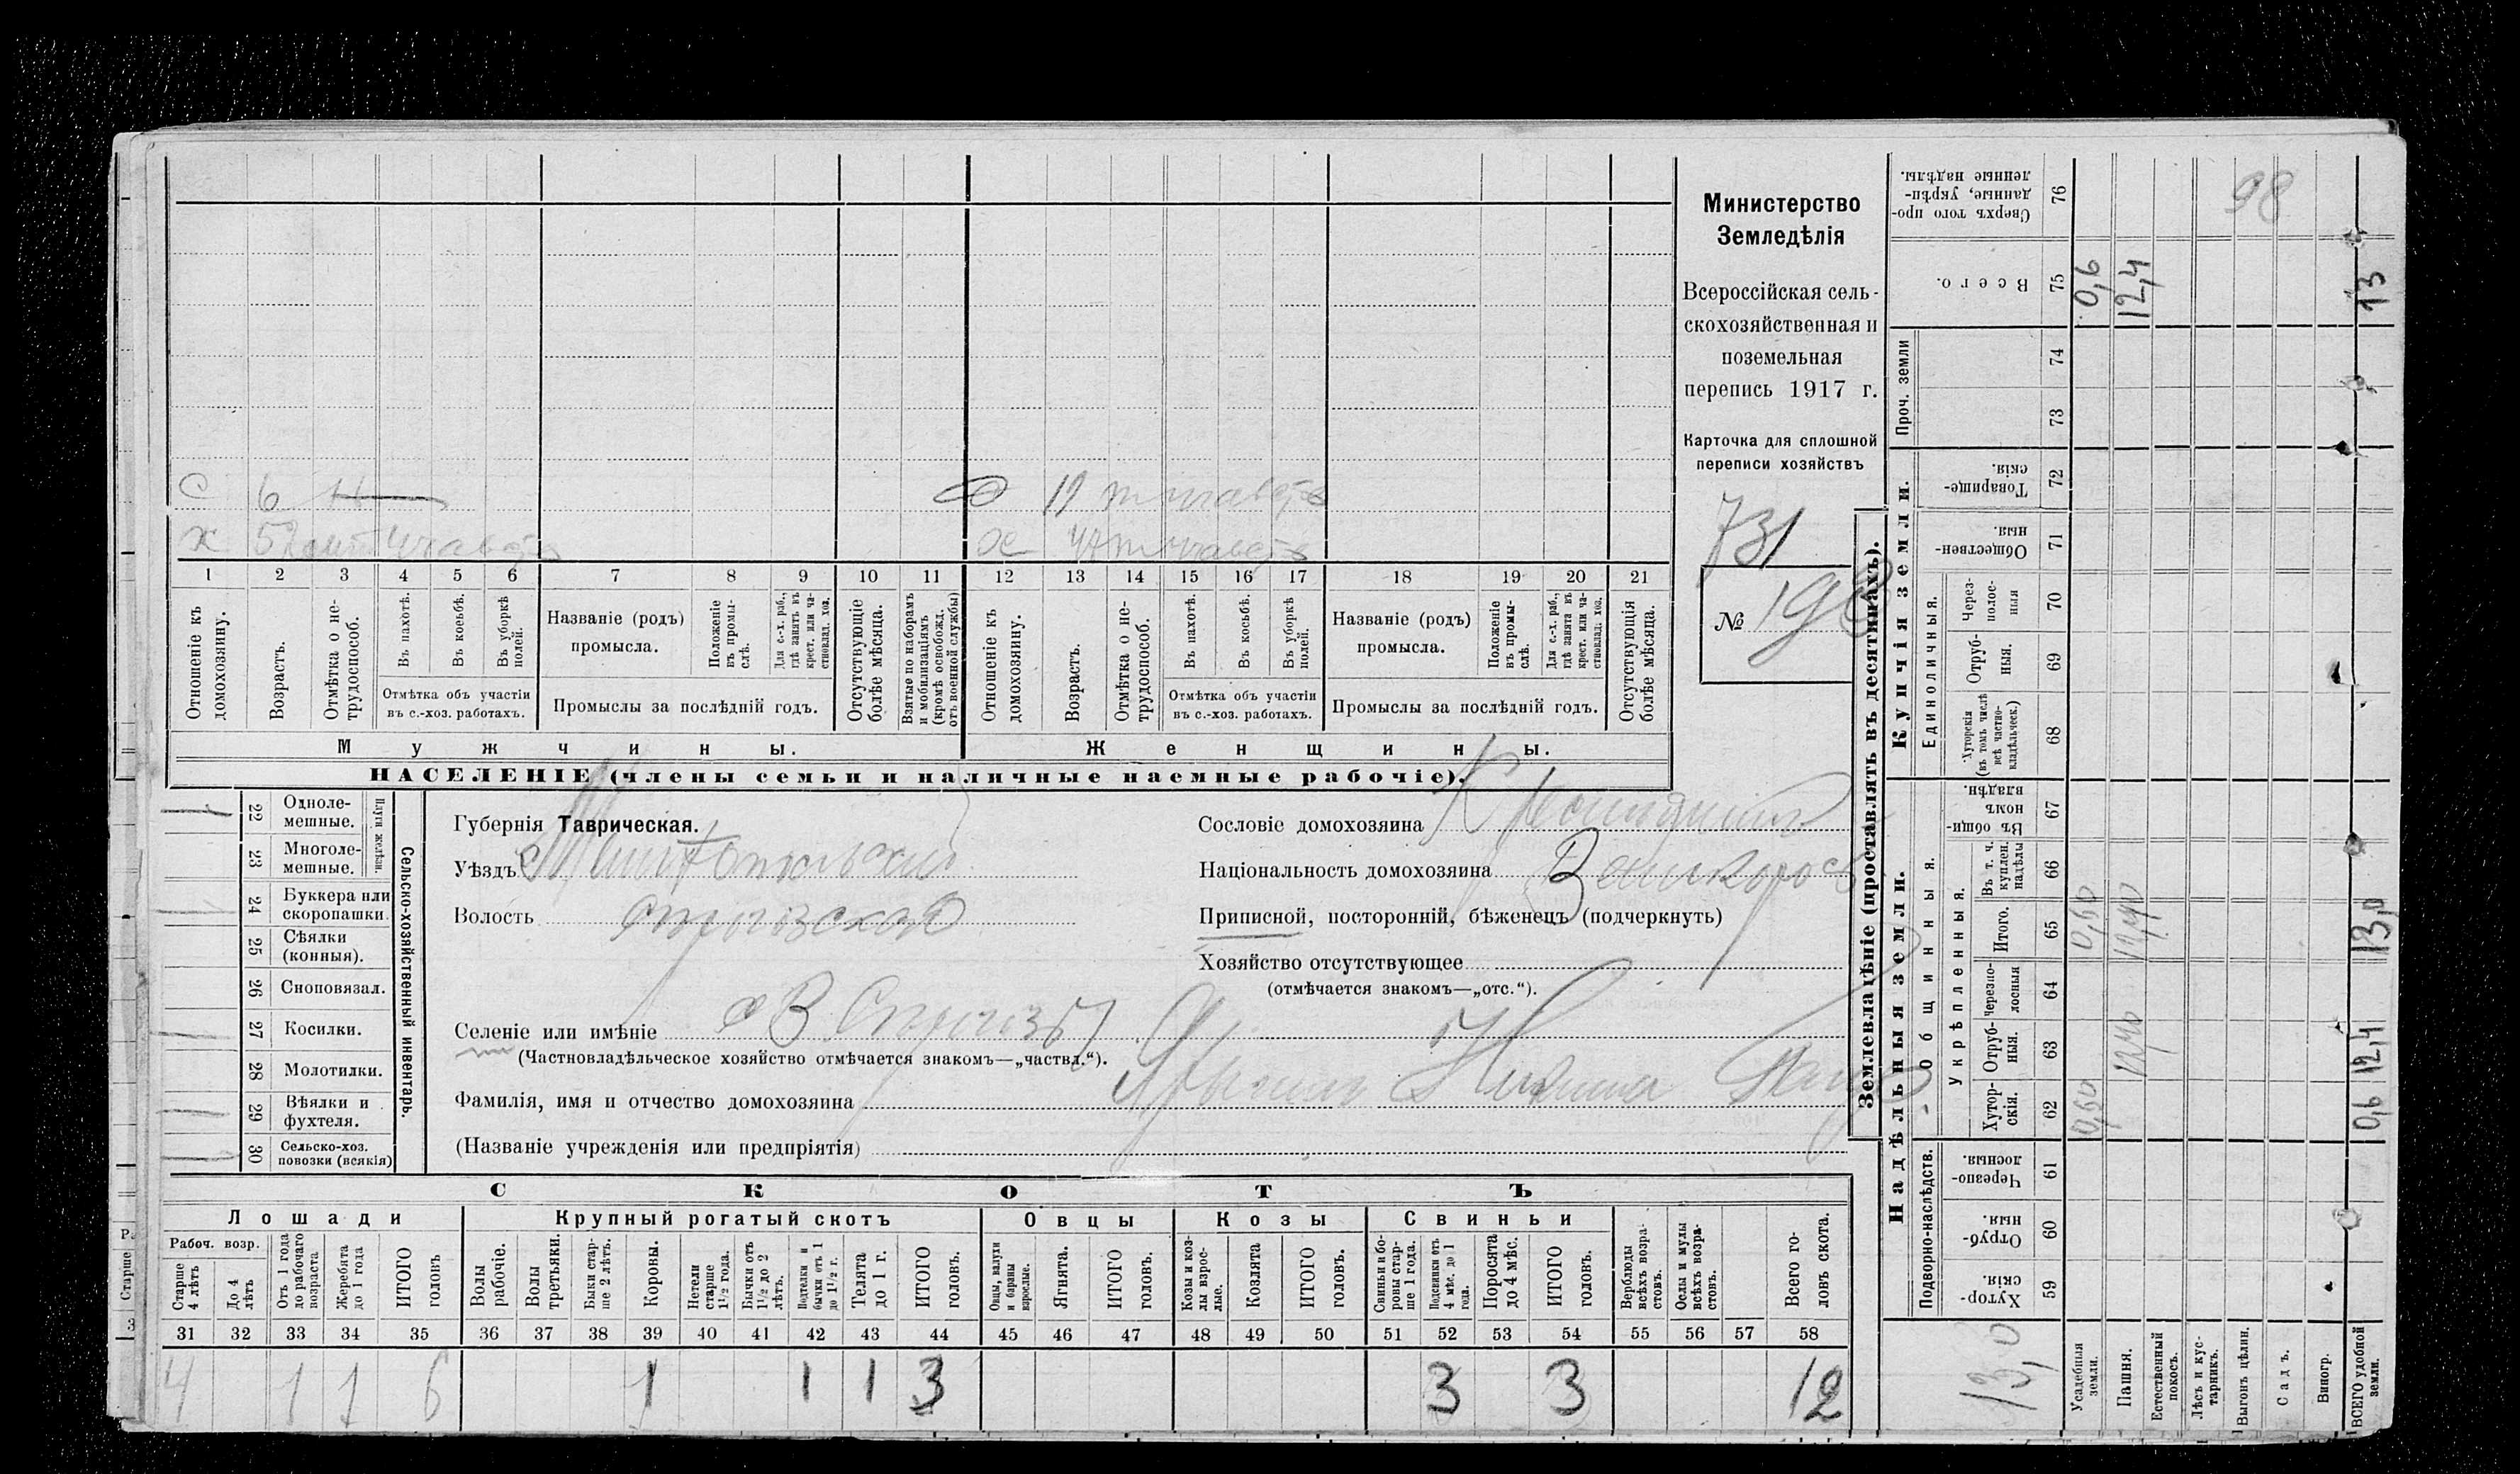 Министерство
Земледѣлія
Всероссійская сель-
скохозяйственная и
поземельная
перепись 1917 г.
Карточка для сплошной
переписи хозяйствъ
731
№ 198
98
С 6
11
Х 52
Х
1 2 3 4 5 6 7 8 9 10 11 12 13 14 15 16 17 18 19 20 21
Отношеніе къ домохозяину.
Возрастъ.
Отмѣтка о не-трудоспособ.
Въ пахотѣ.
Въ косьбѣ.
Въ уборкѣ полей.
Отмѣтка объ участіи
въ с.-хоз. работахъ.
Названіе (родъ)
промысла.
Положеніе въ промы-слѣ.
Для с.-х. раб., гдѣ занятъ въ крест. или ча-стновлад. хоз.
Промыслы за послѣдній годъ.
Отсутствующіе болѣе мѣсяца.
Взятые по наборамъ и мобилизаціямъ (кромѣ освобожд. отъ военной службы)
Отношеніе къ домохозяину.
Возрастъ.
Отмѣтка о не-трудоспособ.
Въ пахотѣ.
Въ косьбѣ.
Въ уборкѣ полей.
Отмѣтка объ участіи
въ с.-хоз. работахъ.
Названіе (родъ)
промысла.
Положеніе въ промы-слѣ.
Для с.-х. раб., гдѣ занята въ крест. или ча-стновлад. хоз.
Промыслы за послѣдній годъ.
Отсутствующія болѣе мѣсяца.
Мужчины.
Женщины.
НАСЕЛЕНІЕ (члены семьи и наличные наемные рабочіе).
Сельско-хозяйственный инвентарь.
Плуги желѣзн.
22 Одноле-мешные.
23 Многоле-мешные.
24 Буккера или скоропашки.
25 Сѣялки (конныя).
26 Сноповязал.
27 Косилки.
28 Молотилки.
29 Вѣялки и фухтеля.
30 Сельско-хоз. повозки (всякія)
Губернія Таврическая.
Уѣздъ Мелитопольскій
Волость
Селеніе или имѣніе
(Частновладѣльческое хозяйство отмѣчается знакомъ—„частвл.“).
Фамилія, имя и отчество домохозяина
(Названіе учрежденія или предпріятія)
Сословіе домохозяина Крестьянинъ
Національность домохозяина Великоросъ
Приписной, посторонній, бѣженецъ (подчеркнуть)
Хозяйство отсутствующее
(отмѣчается знакомъ—„отс.“).
СКОТЪ
Лошади
Крупный рогатый скотъ
Овцы
Козы
Свиньи
Рабоч. возр.
Старше 4 лѣтъ
До 4 лѣтъ
Отъ 1 года до рабочаго возраста
Жеребята до 1 года
ИТОГО головъ
Волы рабочіе.
Волы третьяки.
Быки стар-ше 2 лѣтъ.
Коровы.
Нетели старше 1 1/2 года.
Бычки отъ 1 1/2 до 2 лѣтъ.
Подтелки и бычки отъ 1 до 1 1/2 г.
Телята до 1 г.
ИТОГО головъ.
Овцы, валухи и бараны взрослые.
Ягнята.
ИТОГО головъ.
Козы и коз-лы взрос-лые.
Козлята
ИТОГО головъ.
Свиньи и бо-ровы стар-ше 1 года.
Подсвинки отъ 4 мѣс. до 1 года.
Поросята до 4 мѣс.
ИТОГО головъ.
Верблюды всѣхъ возра-стовъ.
Ослы и мулы всѣхъ возра-стовъ.
Всего го-ловъ скота.
31 32 33 34 35 36 37 38 39 40 41 42 43 44 45 46 47 48 49 50 51 52 53 54 55 56 57 58
4 1 1 6 1 1 1 3 3 3 12
Землевладѣніе (проставлять въ десятинахъ).
Надѣльныя земли.
Купчія земли.
Проч. земли
Подворно-наслѣдств.
Общинныя.
Укрѣпленныя.
Единоличныя.
59 Хутор-скія.
60 Отруб-ныя.
61 Черезпо-лосныя.
62 Хутор-скія.
63 Отруб-ныя.
64 Черезпо-лосныя
65 Итого.
66 Въ т. ч. куплен. надѣлы
67 Въ общин-номъ владѣн.
68 Хуторскія (въ томъ числѣ всѣ частно-владѣльческ.)
69 Отруб-ныя.
70 Через-полос-ныя
71 Обществен-ныя.
72 Товарище-скія.
73
74
75 Всего.
76 Сверхъ того про-данные, укрѣп-ленные надѣлы.
Усадебныя земли.
Пашня.
Естественный покосъ.
Лѣсъ и кус-тарникъ.
Выгонъ цѣлин.
Садъ.
Виногр.
ВСЕГО удобной земли.
13,0
0,60
12,40
0,60
12,40
0,6
12,4
0,6
12,4
13,0
13